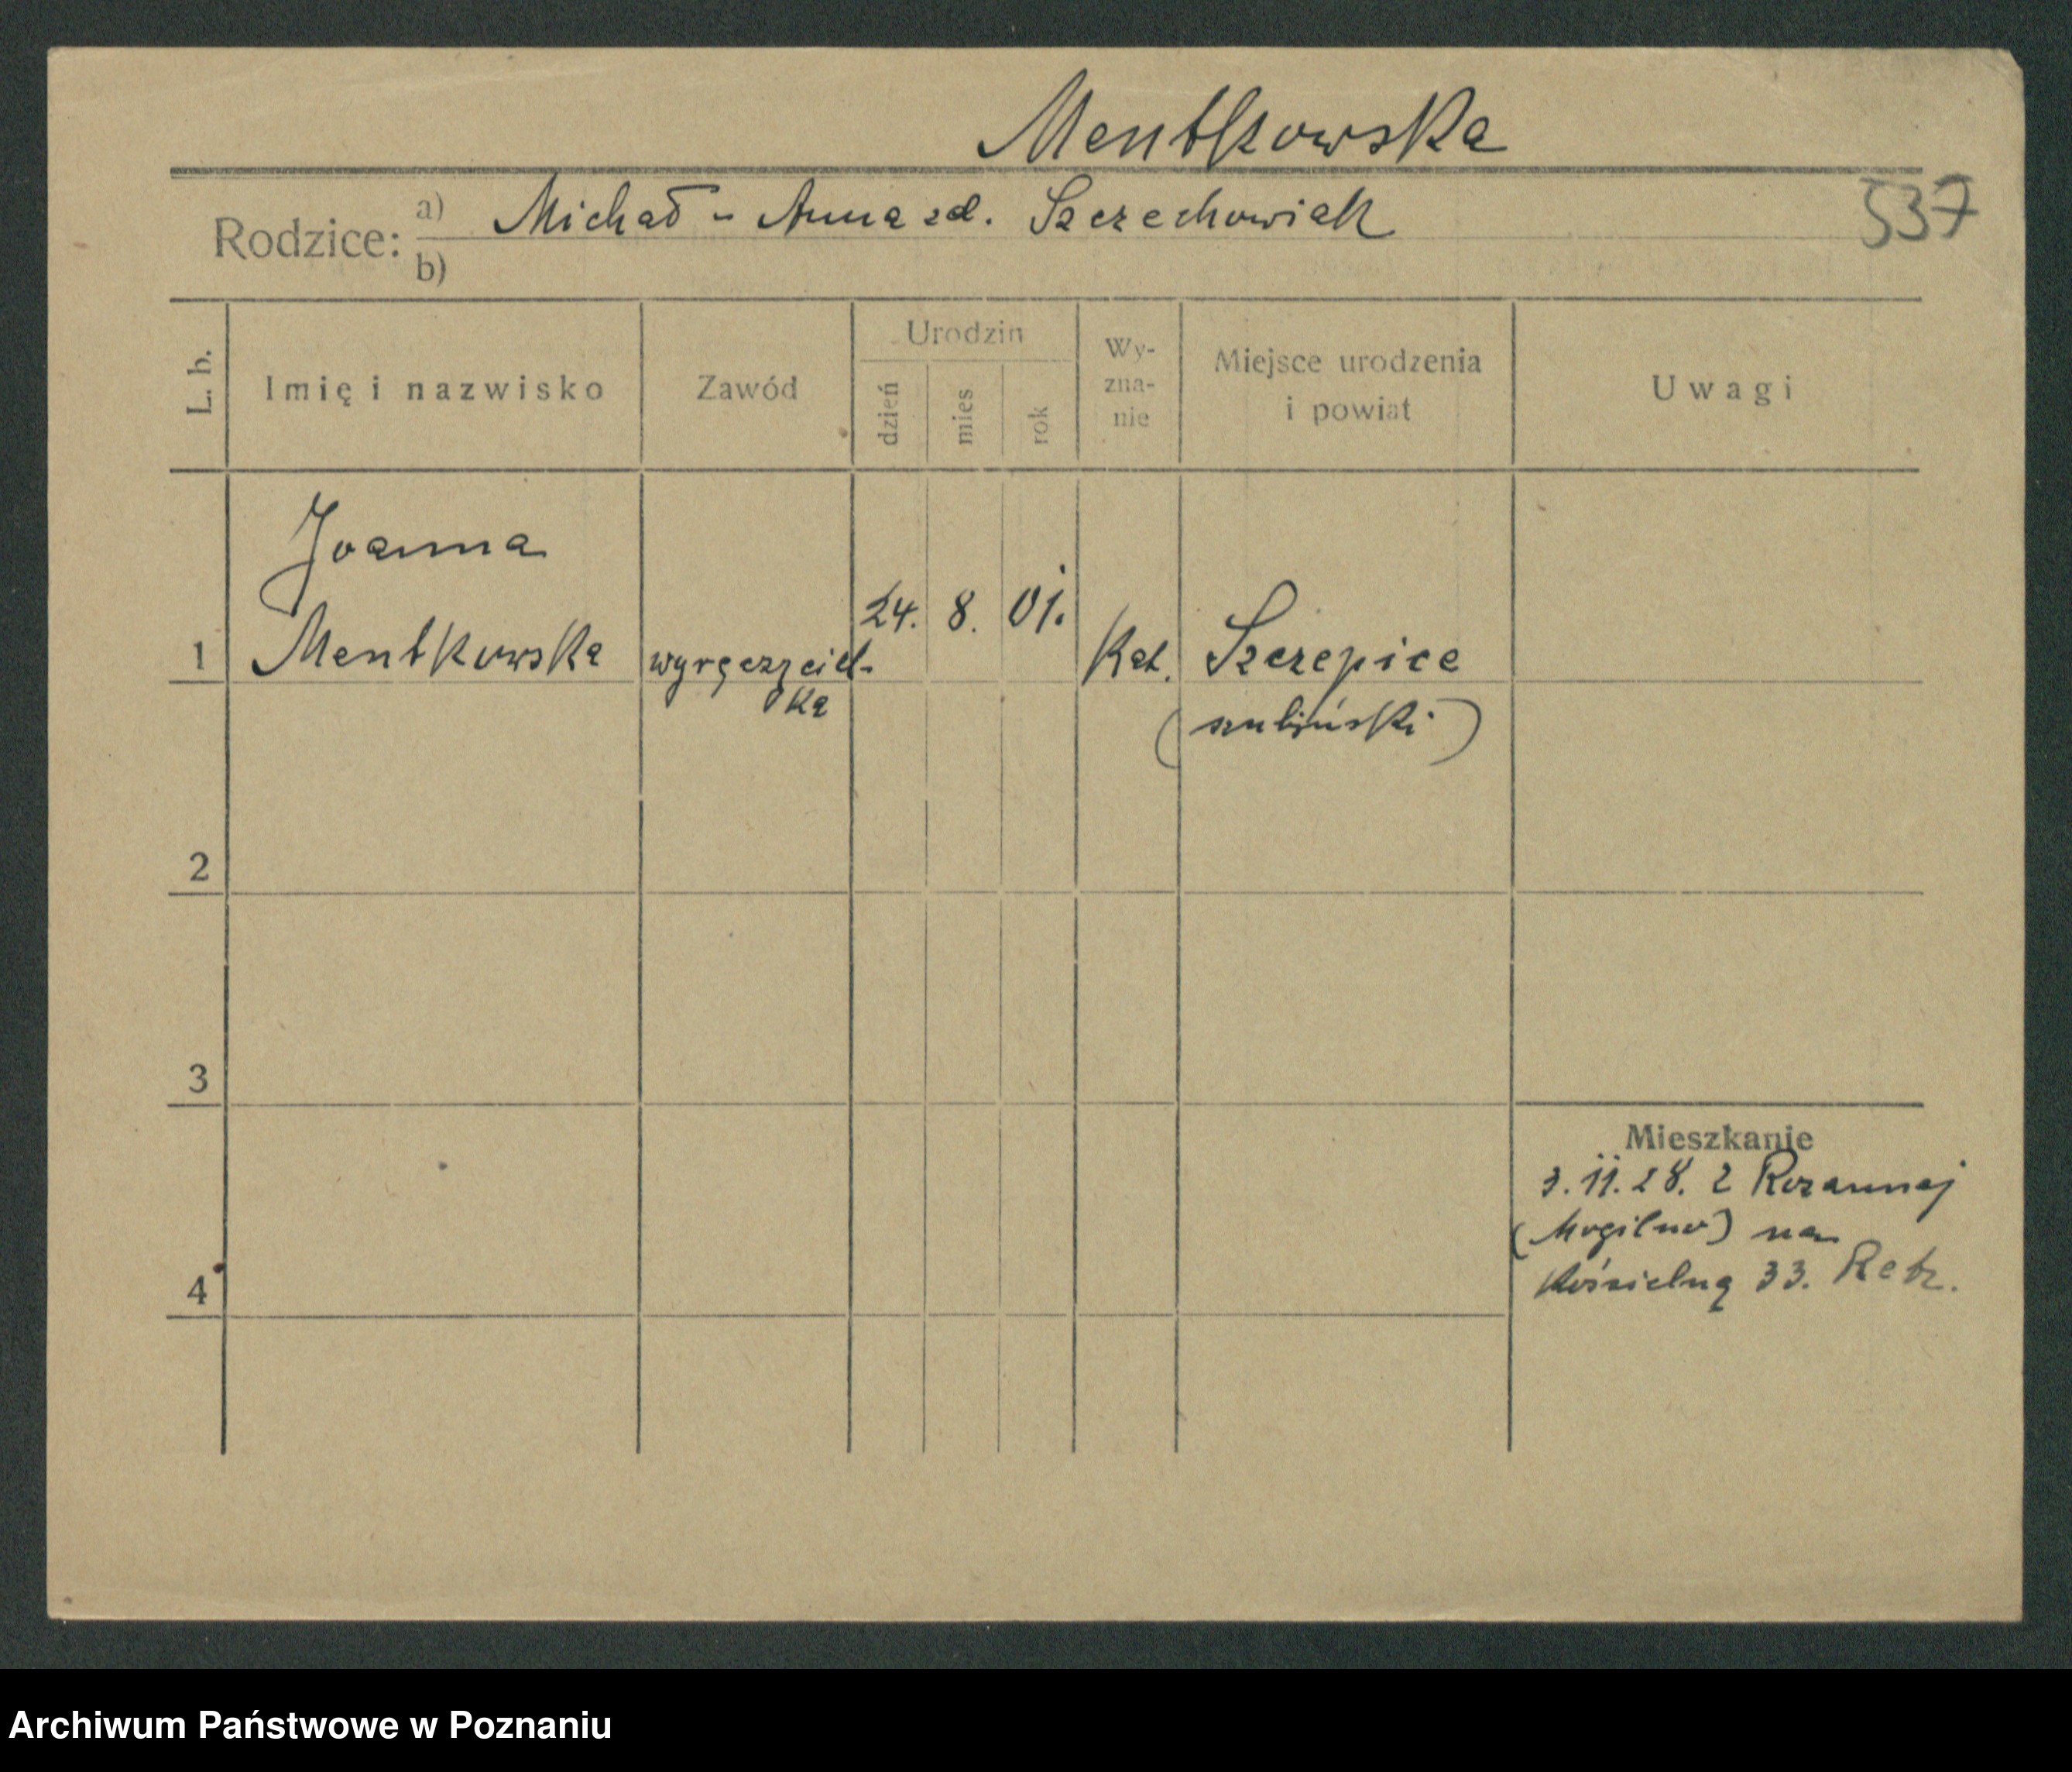 Mentkowska
537
Rodzice: a) Michał - Anna zd. Szczechowiak
b)
L. b.
Imię i nazwisko
Zawód
Urodzin
dzień
mies
rok
Wy-
zna-
nie
Miejsce urodzenia
i powiat
Uwagi
Joanna
1 Mentkowska wyręczyciel- 24. 8. 01. Kat. Szczepice
ka (szubiński)
2
3
Mieszkanie
3.11.28. z
(Mogilno) na
4 Kościelną 33. Ratz.
Archiwum Państwowe w Poznaniu